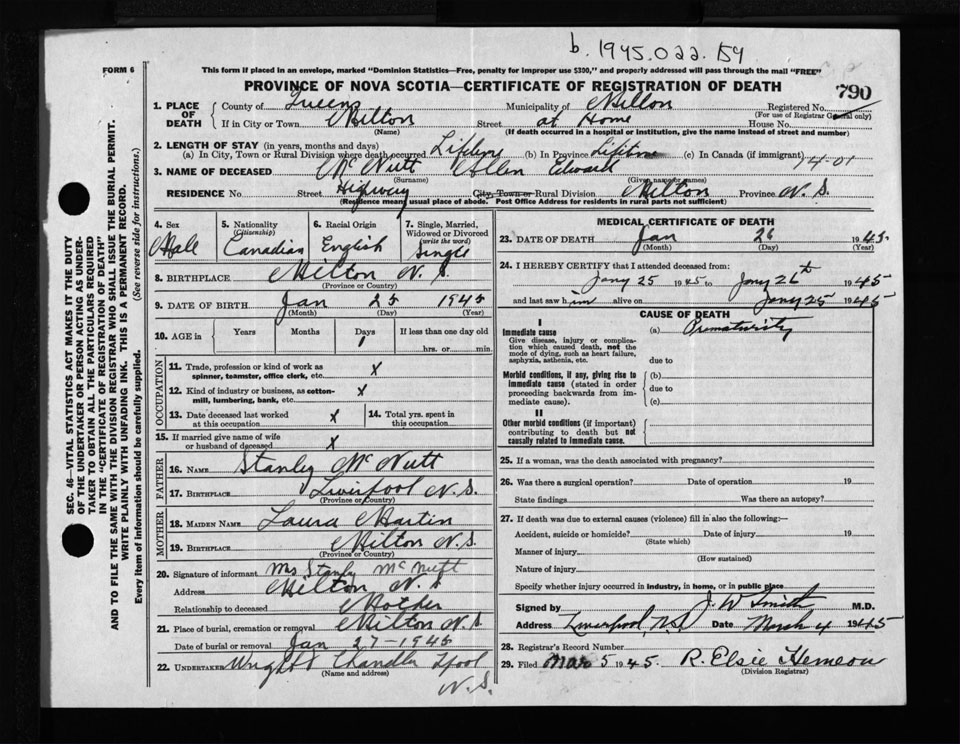 b. 1945.022.154
FORM 6
This form if placed in an envelope, marked "Dominion Statistics—Free, penalty for improper use $300," and properly addressed will pass through the mail "FREE"
PROVINCE OF NOVA SCOTIA—CERTIFICATE OF REGISTRATION OF DEATH
790
1. PLACE OF DEATH
County of Queens Municipality of Milton Registered No.
(For use of Registrar General only)
If in City or Town Milton Street at Home House No.
(Name) (If death occurred in a hospital or institution, give the name instead of street and number)
2. LENGTH OF STAY (in years, months and days)
(a) In City, Town or Rural Division where death occurred Lifetime (b) In Province Lifetime (c) In Canada (if immigrant)
14-01
3. NAME OF DECEASED McNutt Allen Edward
(Surname) (Given names)
RESIDENCE No Street Highway City, Town or Rural Division Milton Province N.S.
(Residence means usual place of abode. Post Office Address for residents in rural parts not sufficient)
4. Sex
Male
5. Nationality (Citizenship)
Canadian
6. Racial Origin
English
7. Single, Married, Widowed or Divorced (write the word)
Single
8. BIRTHPLACE Milton N.S.
(Province or Country)
9. DATE OF BIRTH Jan 25 1945
(Month) (Day) (Year)
10. AGE in
Years Months Days If less than one day old
1
hrs. or min.
OCCUPATION
11. Trade, profession or kind of work as spinner, teamster, office clerk, etc. x
12. Kind of industry or business, as cotton-mill, lumbering, bank, etc. x
13. Date deceased last worked at this occupation x
14. Total yrs. spent in this occupation
15. If married give name of wife or husband of deceased x
FATHER
16. NAME Stanley McNutt
17. BIRTHPLACE Liverpool N.S.
(Province or Country)
MOTHER
18. MAIDEN NAME Laura Martin
19. BIRTHPLACE Milton N.S.
(Province or Country)
20. Signature of informant Mrs Stanley McNutt
Address Milton N.S
Relationship to deceased Mother
21. Place of burial, cremation or removal Milton N.S.
Date of burial or removal Jan 27-1945
22. UNDERTAKER Wright Chandler Lpool
(Name and address)
N.S.
MEDICAL CERTIFICATE OF DEATH
23. DATE OF DEATH Jan 26 1945
(Month) (Day) (Year)
24. I HEREBY CERTIFY that I attended deceased from:
Jany 25 1945 to Jany 26th 1945
and last saw him alive on Jany 25 1945
CAUSE OF DEATH
I
Immediate cause
(a) Prematurity
Give disease, injury or complication which caused death, not the mode of dying, such as heart failure, asphyxia, asthenia, etc.
due to
Morbid conditions, if any, giving rise to immediate cause (stated in order proceeding backwards from immediate cause).
(b)
due to
(c)
II
Other morbid conditions (if important) contributing to death but not causally related to immediate cause.
25. If a woman, was the death associated with pregnancy?
26. Was there a surgical operation? Date of operation 19
State findings Was there an autopsy?
27. If death was due to external causes (violence) fill in also the following:—
Accident, suicide or homicide? Date of injury 19
(State which)
Manner of injury
(How sustained)
Nature of injury
Specify whether injury occurred in industry, in home, or in public place
Signed by J. W Smith M.D.
Address Liverpool N.S. Date March 4 1945
28. Registrar's Record Number
29. Filed Mar 5 1945. R. Elsie Hemeon
(Division Registrar)
SEC. 46—VITAL STATISTICS ACT MAKES IT THE DUTY
OF THE UNDERTAKER OR PERSON ACTING AS UNDER-
TAKER TO OBTAIN ALL THE PARTICULARS REQUIRED
IN THE "CERTIFICATE OF REGISTRATION OF DEATH"
AND TO FILE THE SAME WITH THE DIVISION REGISTRAR WHO SHALL ISSUE THE BURIAL PERMIT.
WRITE PLAINLY WITH UNFADING INK. THIS IS A PERMANENT RECORD.
Every item of information should be carefully supplied. (See reverse side for instructions.)